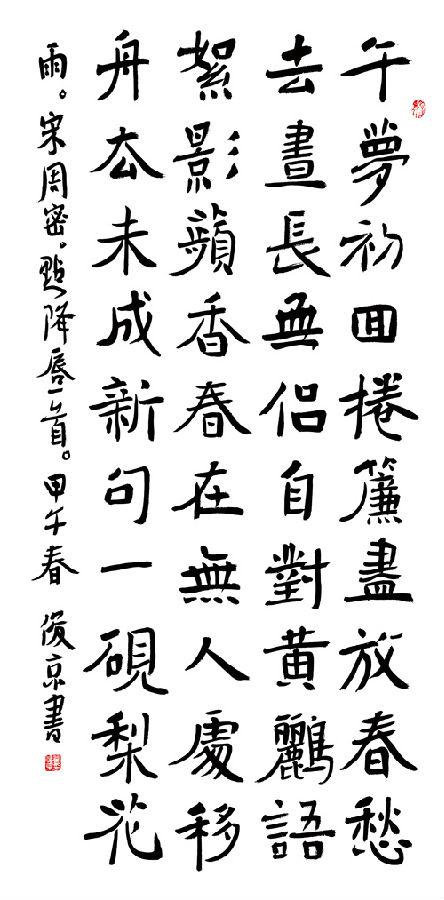 午夢初回捲簾盡放春愁
去晝長無侶自對黃鸝語
絮影蘋香春在無人處移
舟厺未成新句一硯梨花
雨。宋周密。點降唇一首。甲午春 俊京書